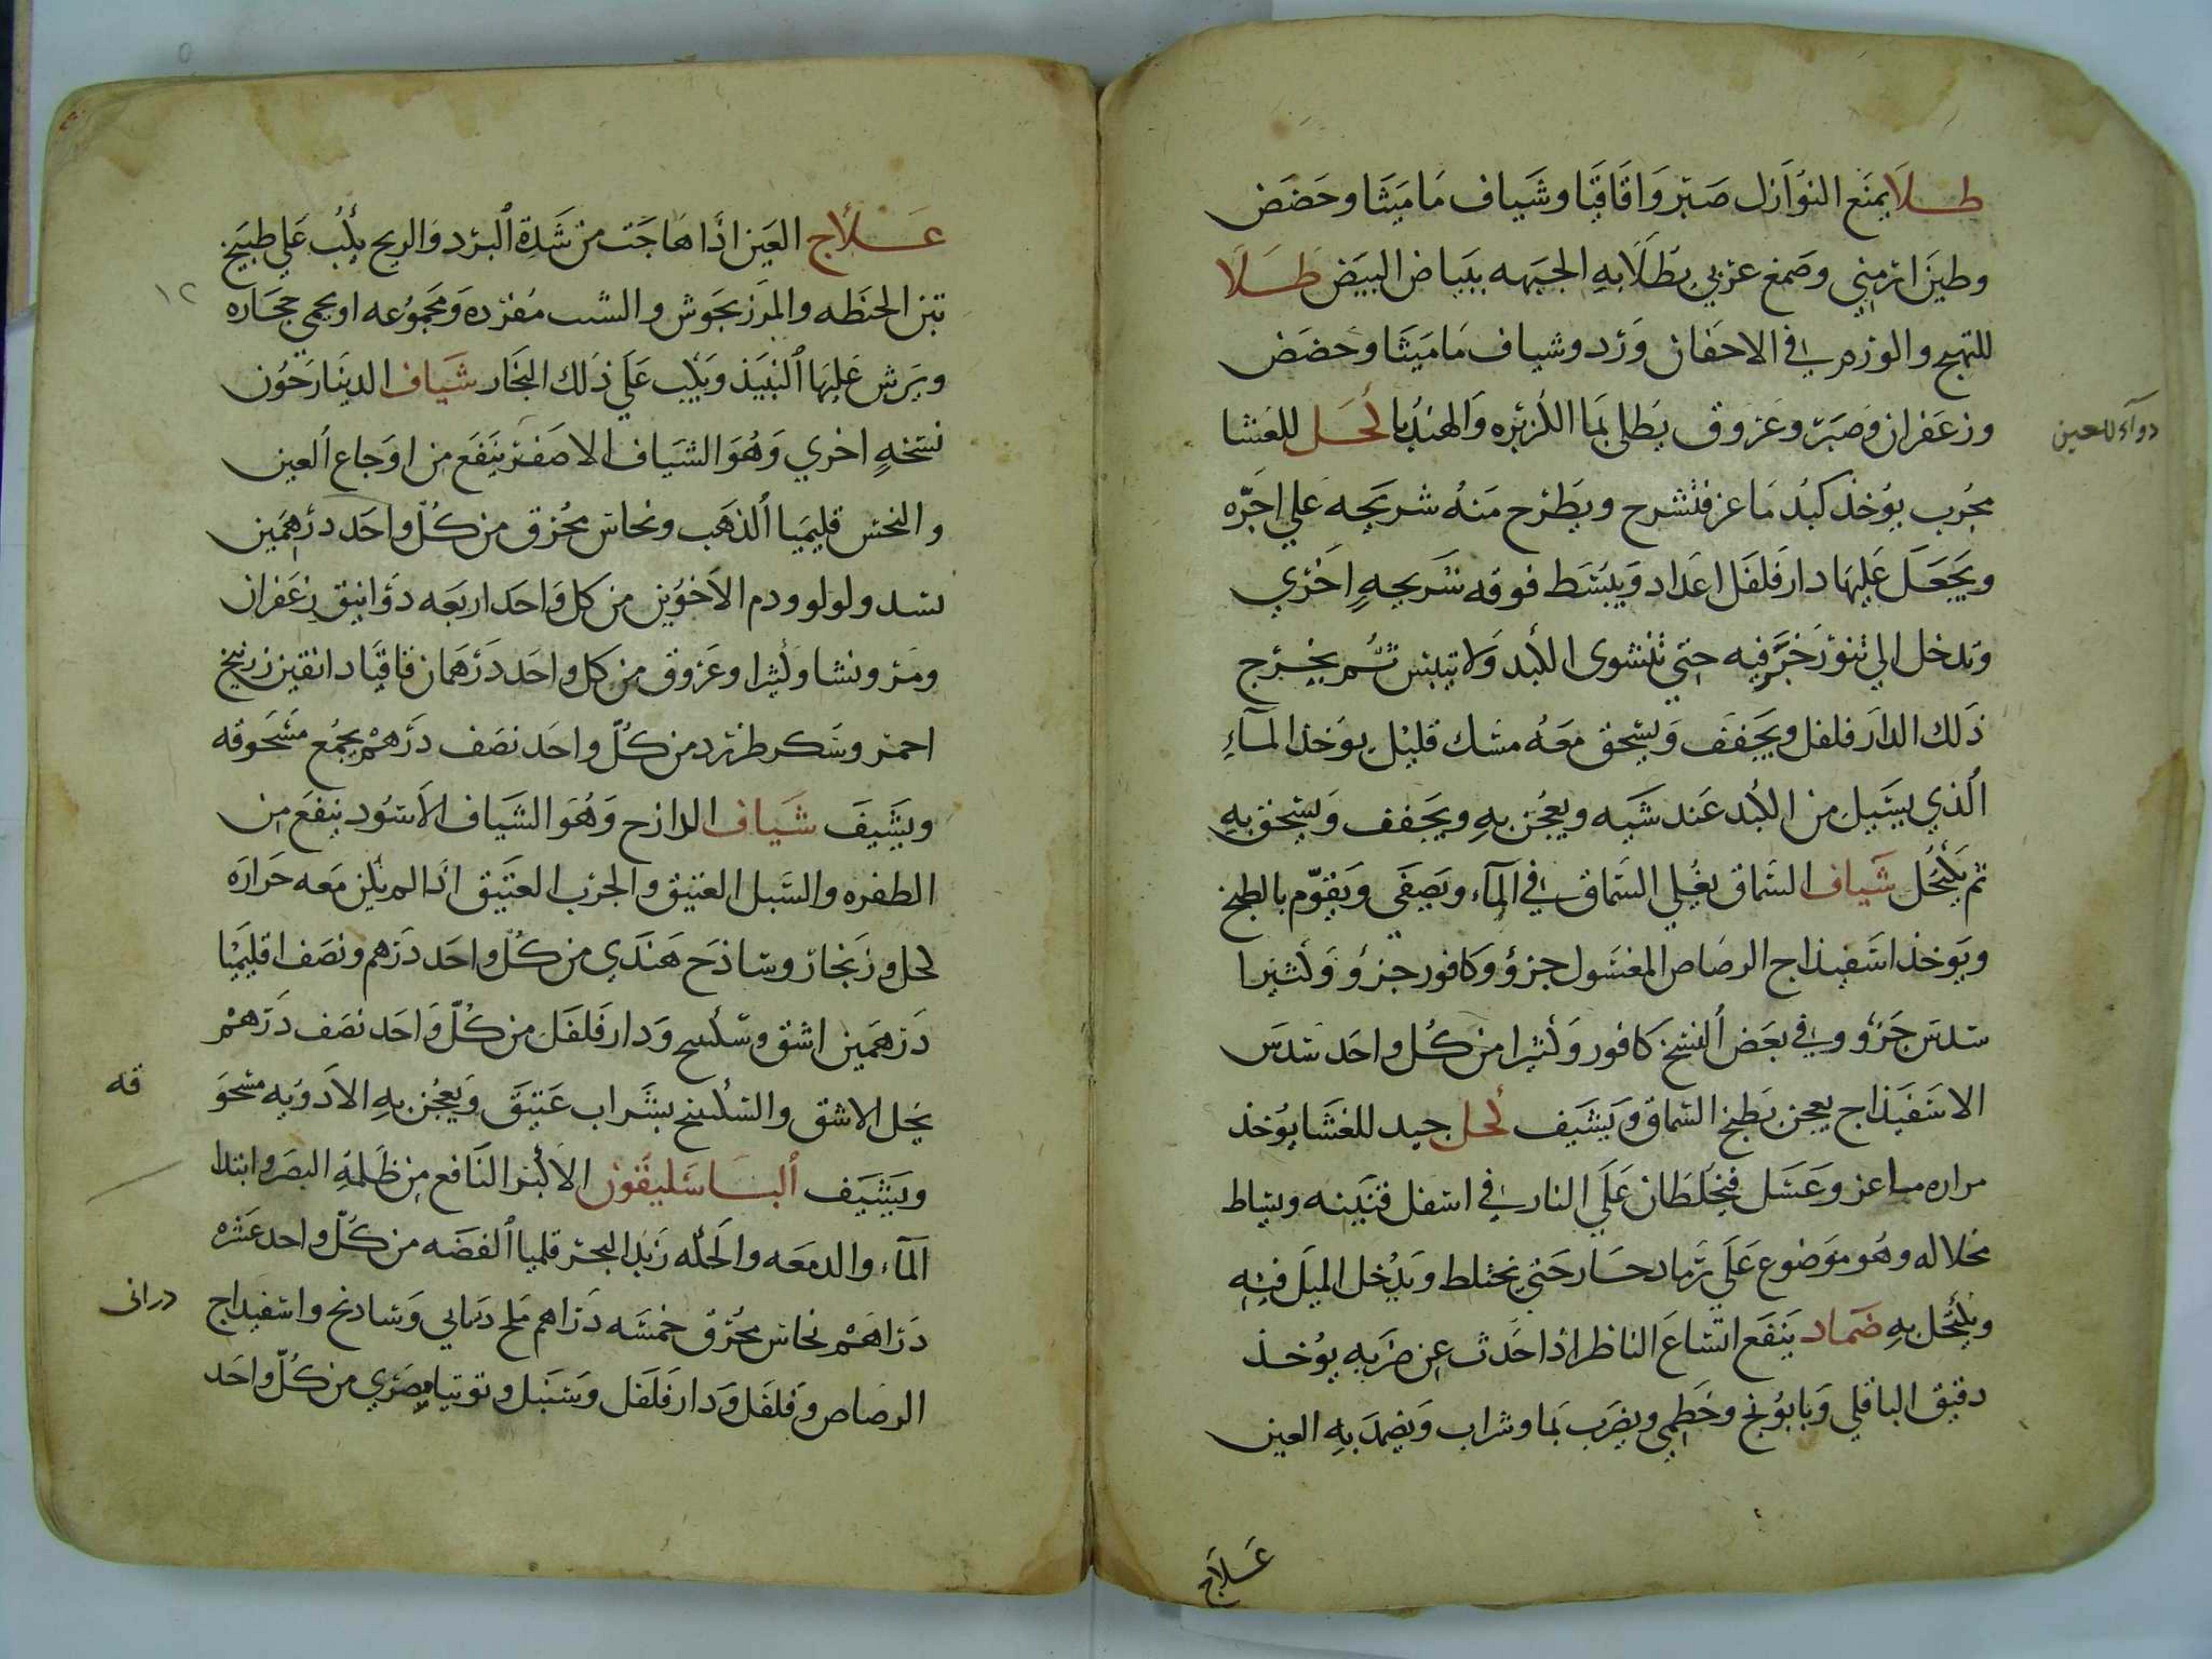 طلا يمنع النوازل صبر واقاقيا وشياف ماميثا وحضض
وطين ارمني وصمغ عربي يطلا به الجبهه ببياض البيض طلا
للتهيج والورم في الاجفان ورد وشياف ماميثا وحضض
وزعفران وصبر وعروق يطلي بما الكزبره والهندبا كحل للعشا
دواء للعين
مجرب يوخذ كبد ماعز فتشرح ويطرح منه شريجه علي اجره
ويجعل عليها دارفلفل اعداد ويبسط فوقه شريجه اخري
وتدخل الي تنور خزفيه حتي تنشوي الكبد ولا تيبس ثم يخرج
ذلك الدارفلفل ويجفف ويسحق معه مسك قليل يوخذ الماء
الذي يسيل من الكبد عند شيه ويعجن به ويجفف ويسحق به
ثم يكتحل شياف السماق يغلي السماق في الماء ويصفي ويقوم بالطبخ
ويوخذ اسفيذاج الرصاص المغسول جزؤ وكافور جزؤ وكثيرا
سدس جزؤ وفي بعض النسخ كافور وكثيرا من كل واحد سدس
الاسفيذاج يعجن بطبخ السماق ويشيف كحل جيد للغشا يوخذ
مراره ماعز وعسل فيخلطان علي النار في اسفل قنينه ويساط
بخلاله وهو موضوع علي رماد حار حتي يختلط ويدخل الميل فيه
ويكتحل به ضماد ينفع اتساع الناظر اذا حدث عن ضربه يوخذ
دقيق الباقلي وبابونج وخطمي ويضرب بما وشراب ويضمد به العين
علاج
علاج العين اذا هاجت من شدة البرد والريح يكب علي طبيخ
تبن الحنطه والمرزنجوش والشب مفرده ومجموعه او يحمي حجاره
١٢
ويرش عليها النبيذ ويكب علي ذلك البخار شياف الدينارحون
نسخه اخري وهو الشياف الاصفر ينفع من اوجاع العين
والنخس قليميا الذهب ونحاس محرق من كل واحد درهمين
بسد ولولو ودم الاخوين من كل واحد اربعه دوانيق زعفران
ومر ونشا وكثيرا وعروق من كل واحد درهمان قاقيا دانقين زرنيخ
احمر وسكر طبرزد من كل واحد نصف درهم يجمع مسحوقه
ويشيف شياف الدارح وهو الشياف الاسود ينفع من
الظفره والسبل العتيق والجرب العتيق اذا لم يكن معه حراره
كحل وزنجار وساذج هندي من كل واحد درهم ونصف اقليميا
درهمين اشق وسكبينج ودارفلفل من كل واحد نصف درهم
يحل الاشق والسكبينج بشراب عتيق ويعجن به الادويه مسحو
قه
ويشيف الباسليقون الاكبر النافع من ظلمة البصر وابتدا
الماء والدمعه والحكه زبد البحر قلميا الفضه من كل واحد عشره
دراهم نحاس محرق خمسه دراهم ملح دراني وشادنج واسفيداج
درانى
الرصاص وفلفل ودارفلفل وسنبل وتوتيا مصري من كل واحد